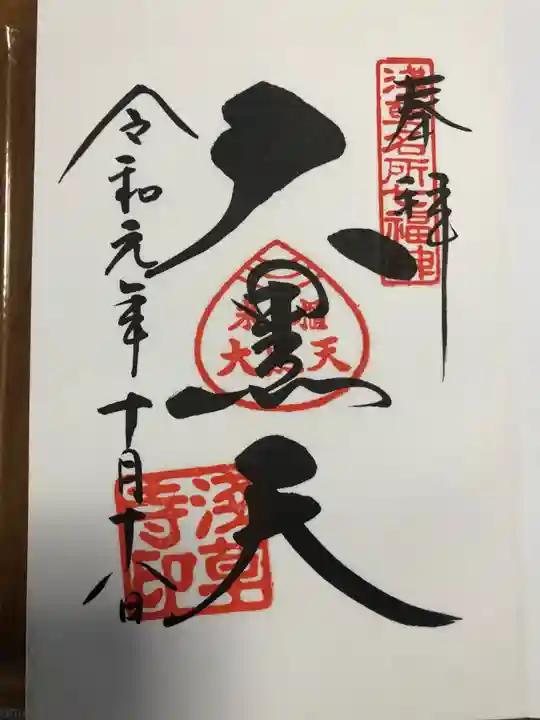 奉拝
浅草名所七福神
大黒天
米櫃
大黒天
浅草
寺印
令和元年十月十八日